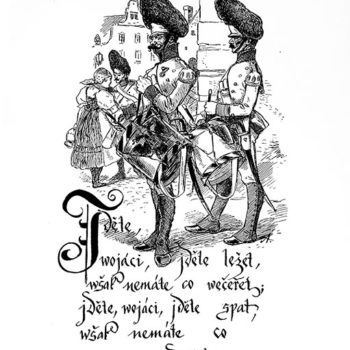 Jděte,
wojáci, jděte ležet,
wšak nemáte co wečeřet;
jděte, wojáci, jděte spat,
wšak nemáte co